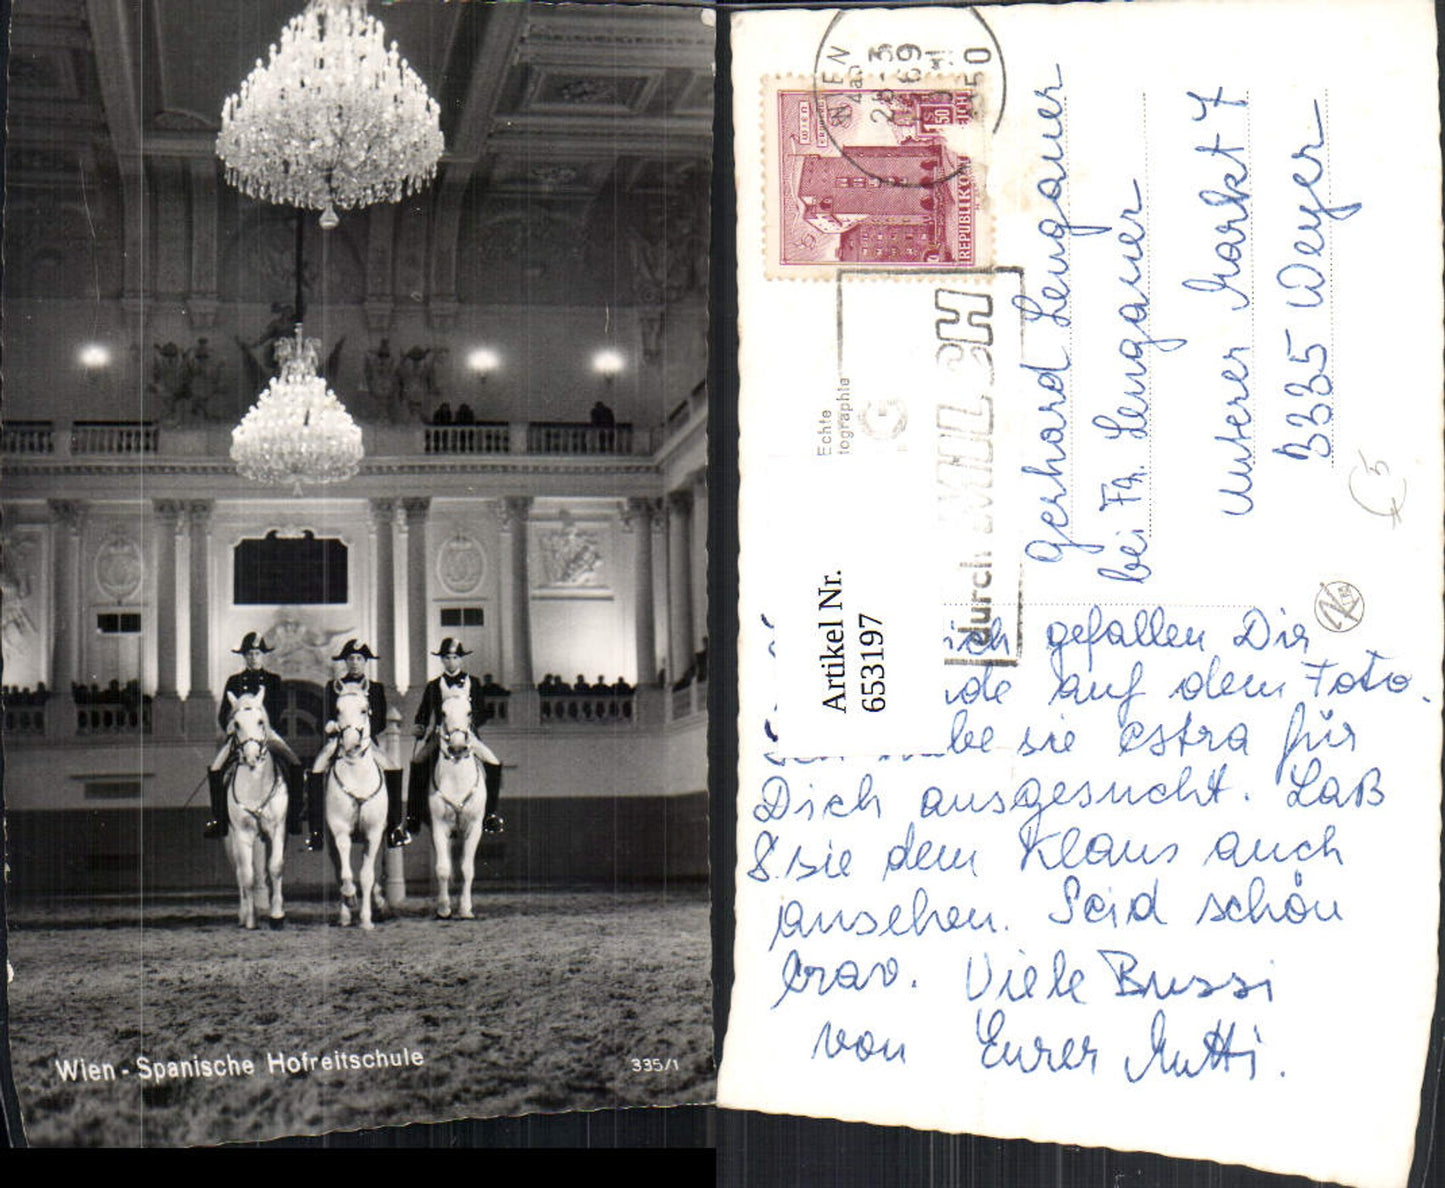 Wien - Spanische Hofreitschule
335/1
WIEN
28.-3
69
150
WIEN
ERDBERG
S 1.50
REPUBLIK
Echte
tographie
durch MILCH
Artikel Nr.
653197
Gerhard Lengauer
bei Fa. Lengauer
Unterer Markt 7
3335 Weyer
€ 5
ich gefallen Dir
de auf dem Foto.
habe sie extra für
Dich ausgesucht. Laß
sie dem Klaus auch
ansehen. Seid schön
brav. Viele Bussi
von Eurer Mutti.